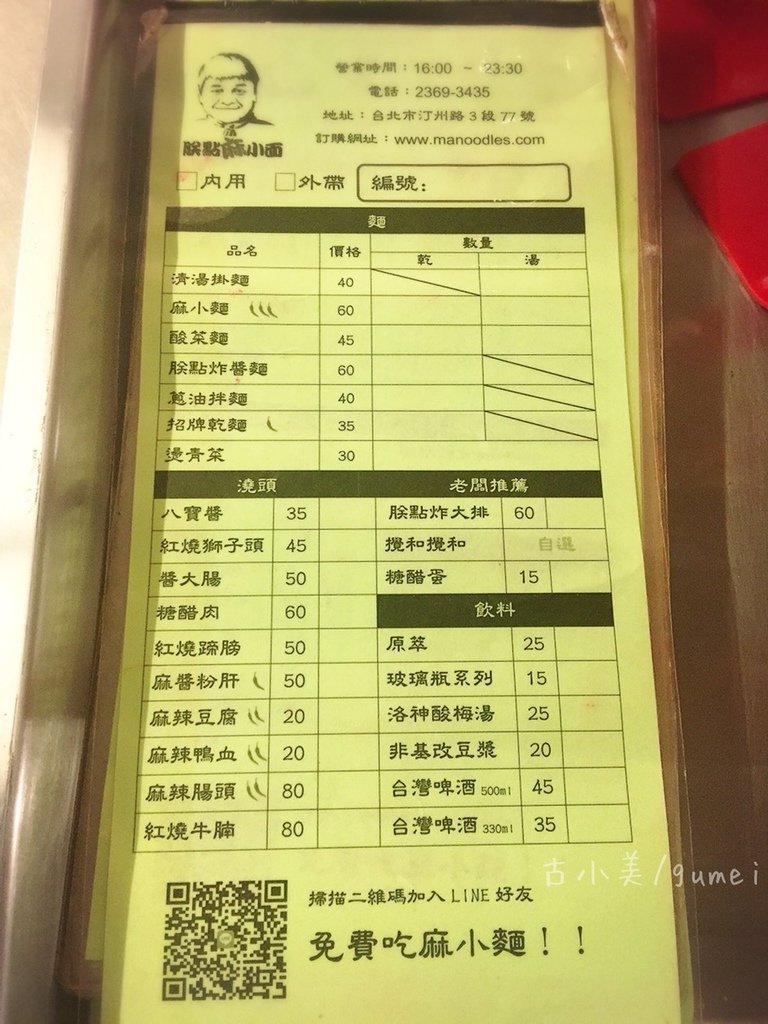 營業時間：16:00 ~ 23:30
電話：2369-3435
地址：台北市汀州路3段77號
訂購網址：www.manoodles.com
朕點麻小面
內用 外帶 編號：
麵
品名 價格 數量
乾 湯
清湯掛麵 40
麻小麵 60
酸菜麵 45
朕點炸醬麵 60
蔥油拌麵 40
招牌乾麵 35
燙青菜 30
澆頭 老闆推薦
八寶醬 35 朕點炸大排 60
紅燒獅子頭 45 攪和攪和 自選
醬大腸 50 糖醋蛋 15
糖醋肉 60 飲料
紅燒蹄膀 50 原萃 25
麻醬粉肝 50 玻璃瓶系列 15
麻辣豆腐 20 洛神酸梅湯 25
麻辣鴨血 20 非基改豆漿 20
麻辣腸頭 80 台灣啤酒 500ml 45
紅燒牛腩 80 台灣啤酒 330ml 35
古小美/gumei
掃描二維碼加入 LINE 好友
免費吃麻小麵！！